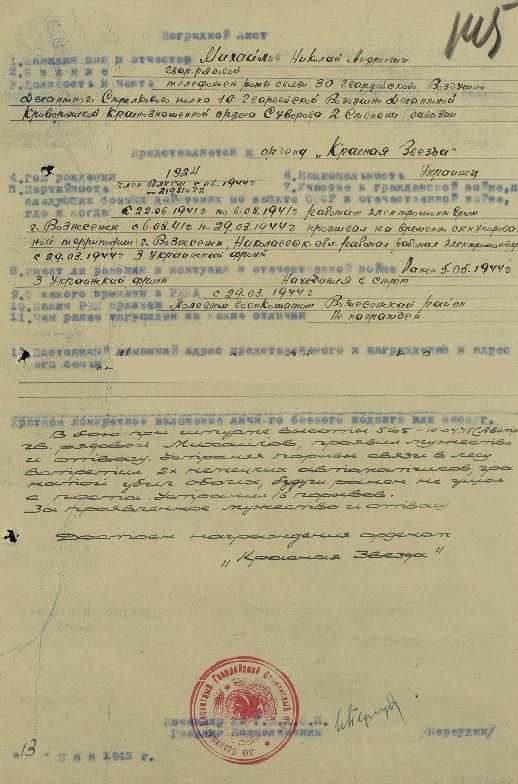 Наградной лист
1. Фамилия имя и отчество Михайлов Николай Андреевич
2. Звание гвар. рядовой
3. Должность и часть телефонист роты связи 30 Гвардейского Воздушно
Десантного Стрелкового полка 10 Гвардейской Воздушно Десантной
Криворожской Краснознаменной ордена Суворова 2 Степени дивизии
Представляется к ордену „Красная Звезда"
4. Год рождения 1924 6. Национальность Украинец
5. Партийность член ВЛКСМ с 06.1944г 7. Участие в гражданской войне,
№ 21981072
следующих боевых действиях по защите СССР и отечественной войне,
где и когда с 22.06.1941г по 6.08.1941г работал электромонтером
г. Вознесенск с 6.08.41г по 29.03.1944г проживал на временно оккупирован
ной территории г. Вознесенск, Николаевской работал электромонтер
с 29.03.1944г 3 Украинский фронт
8. Имеет ли ранения и контузии в отечественной войне Ранен 5.05.1944г
3 Украинский фронт Находится в строю
9. С какого времени в РККА с 29.03.1944г
10. Каким РВК призван Полевым Военкоматом Вознесенский район
11. Чем ранее награжден за какие отличия Не награжден
12. Постоянный домашний адрес представляемого к награждению и адрес
его семьи
Краткое конкретное изложение личного боевого подвига или заслуг.
В бою при штурме высоты 565
гв. рядовой Михайлов, проявил мужество
и отвагу. Устраняя порывы связи в лесу
встретил 2х немецких автоматчиков, гра
натой убил обоих, будучи ранен не ушел
с поста. Устранил порывов.
За проявленное мужество и отвагу
Достоин награждения орденом
„Красная Звезда"
Командир 30 Г.В.Д.С.П.
Гвардии Подполковник
13 Мая 1945 г.